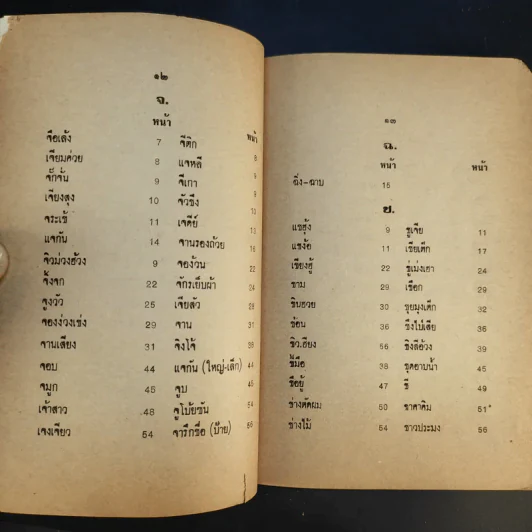 ๑๒
จ.
หน้า หน้า
จือเล้ง 7 จีติก 8
เจียมค่วย 8 แจหลี 8
จั๊กจั่น 9 จีเกา 9
เจียงสุง 10 จัวซึง
จระเข้ 11 เจดีย์
แจกัน 14 จานรองถ้วย 16
จิวม่วงฮ้วง 9 จองวัน 22
จิ้งจก 22 จักรเย็บผ้า 24
จูงวัว 25 เจียสัว 28
จองง่วงเช่ง 29 จาน 31
จานเสียง 31 จิงโจ้ 38
จอบ 44 แจกัน (ใหญ่-เล็ก) 44
จมูก 45 จูบ 45
เจ้าสาว 48 จูโบ้ยซัน 54
เจงเจียว 54 จารึกชื่อ (ป้าย) 56
๑๓
ฉ.
หน้า หน้า
ฉิ่ง-ฉาบ 15
ช.
แชฮุ้ง 9 ชูเจีย 11
แชง้อ 11 เชียเต็ก 17
เชียงฮู้ 22 ชู่เม่งเฮา 24
ชาม 29 เชือก 29
ชินฮวย 30 ชุยมุงเต็ก 32
ช้อน 36 ชึงไป๋เสีย 36
ชิว.เฮียง 56 ชิงลือ้วง 36
ชี้มือ 38 ชุดอาบน้ำ 45
ชือยู้ 47 ชี 49
ช่างตัดผม 50 ชาคาคิม 51
ช่างไม้ 54 ชาวประมง 56